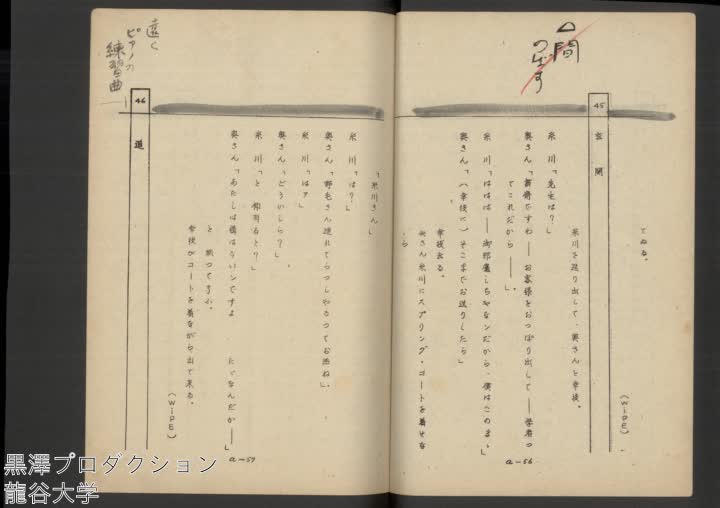 てゐる。
(WIPE)
45 玄関
米川を送り出して、奥さんと幸枝。
米川「先生は？」
奥さん「書斎ですわ――お客様をおつぽり出して――学者つ
てこれだから――」
米川「ははは――御邪魔しちやなンだから、僕はこのまゝ」
奥さん「(幸枝に)そこまでお送りしたら」
幸枝去る。
奥さん米川にスプリング・コートを着せな
がら
a-56
間
のばす
「米川さん」
米川「は？」
奥さん「野毛さん連れてらつしやるつてお話ね」
米川「は？」
奥さん「どういしら？」
米川「と仰有ると？」
奥さん「あたしは構はないンですよ たゞなんだか――」
と 黙つてする。
幸枝がコートを着ながら出て来る。
(WIPE)
46 道
a-57
遠く
ピアノの
練習曲
黒澤プロダクション
龍谷大学